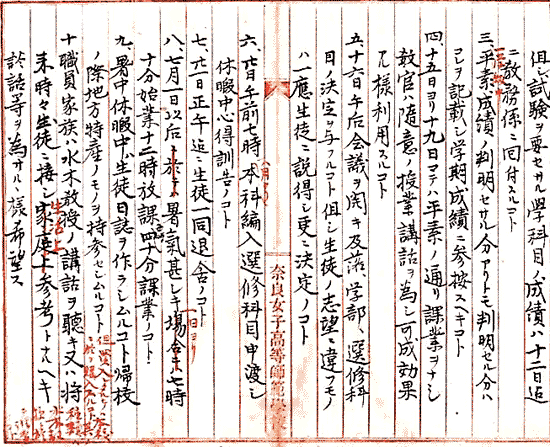 但試験ヲ要セサル学科ノ成績ハ十二日迄
ニ教務係ニ回付スルコト
三、平素成績ノ判明セサル分アリトモ判明セル分ハ
コレヲ記載シ学期成績ニ参按スヘキコト
四十五日ヨリ十九日マテハ平素ノ通リ課業ヲナシ
教官ハ随意ノ授業講話ヲ為シ可成効果
アル様利用スルコト
五十六日午后会議ヲ開キ及落、学部、選修科
目ノ決定ヲ与フルコト但シ生徒ノ志望ニ違フモノ
ハ一應生徒ニ説得シ更ニ決定ノコト
六、廿日午前七時本科編入選修科目申渡シ
休暇中心得訓告ノコト
七、廿一日正午迄ニ生徒一同退舎ノコト
八、七月一日以后ニ於テ暑氣甚シキ場合ハ七時
十分始業十二時放課四十分課業ノコト
九、暑中休暇中生徒日誌ヲ作ラシムルコト帰校
ノ際地方特産ノモノヲ持参セシムルコト
十職員家族ハ水木教授ノ講話ヲ聴キ又ハ将
来時々生徒ニ接シ家庭上参考トスヘキ
談話等ヲ為サル、様希望ス
生活上
奈良女子高等師範學校